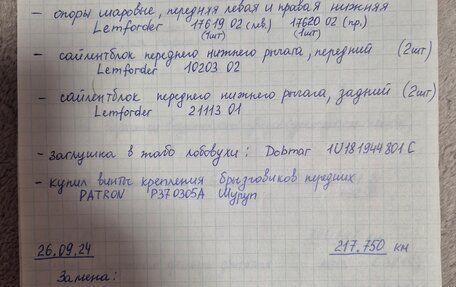 - опоры шаровые, передняя левая и правая нижняя
Lemforder 17619 02 (лв.) 17620 02 (пр.)
(1шт) (1шт)
- сайлентблок переднего нижнего рычага, передний (2шт)
Lemforder 10203 02
- сайлентблок переднего нижнего рычага, задний (2шт)
Lemforder 21113 01
- заглушка в жабо лобовухи: Dobmar 1U1819448 01 C
- купил винты крепления брызговиков передних
PATRON P37 0305A Шуруп
26.09.24 217.750 км
Замена: